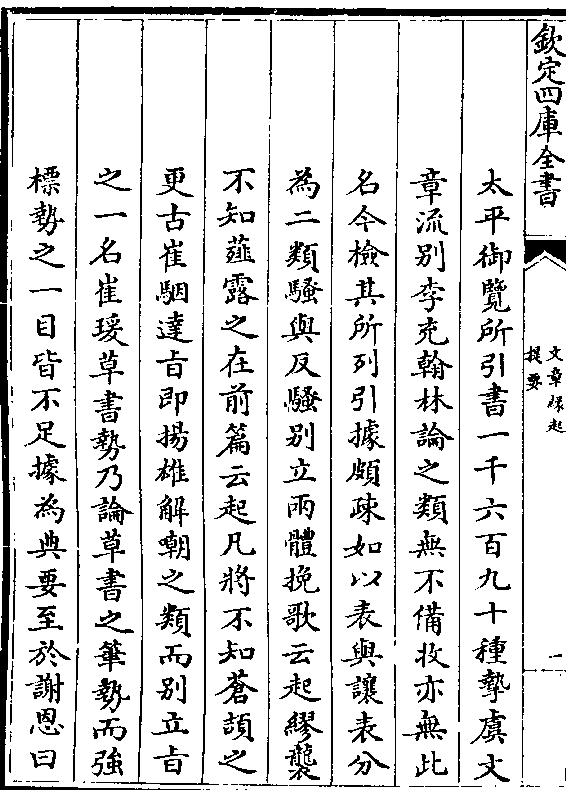 欽定四庫全書
文章縁起
提要
一
太平御覽所引書一千六百九十種摯虞文
章流别李充翰林論之類無不備收亦無此
名今檢其所列引據頗疎如以表與讓表分
為二類騷與反騷别立兩體挽歌云起繆襲
不知薤露之在前篇云起凡將不知蒼頡之
更古崔駰達㫖即揚雄解嘲之類而别立㫖
之一名崔瑗草書勢乃論草書之筆勢而強
標勢之一目皆不足據為典要至於謝恩曰